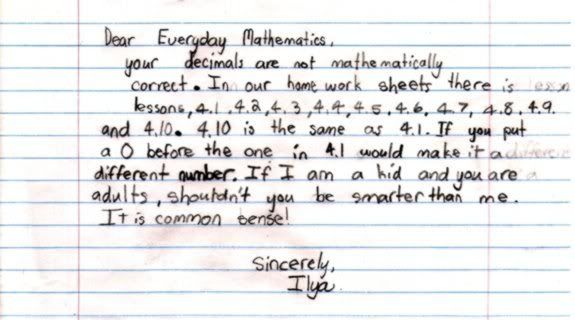 Dear Everyday Mathematics,
your decimals are not mathematically
correct. In our home work sheets there is lesson
lessons, 4.1, 4.2, 4.3, 4.4, 4.5, 4.6, 4.7, 4.8, 4.9.
and 4.10. 4.10 is the same as 4.1. If you put
a 0 before the one in 4.1 would make it a
different number. If I am a kid and you are
adults, shouldn't you be smarter than me.
It is common sense!
Sincerely,
Ilya.